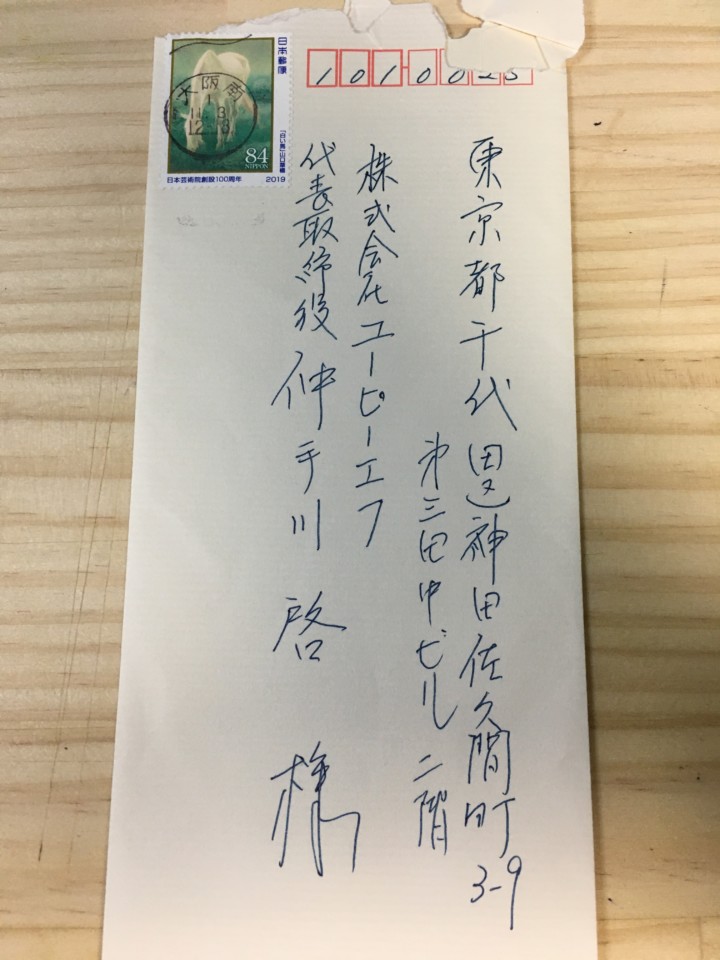 1010025
東京都千代田区神田佐久間町3-9
第三田中ビル二階
株式会社ユーピーエフ
代表取締役 仲手川 啓 様
日本郵便
84
NIPPON
日本芸術院創設100周年 2019
大阪南